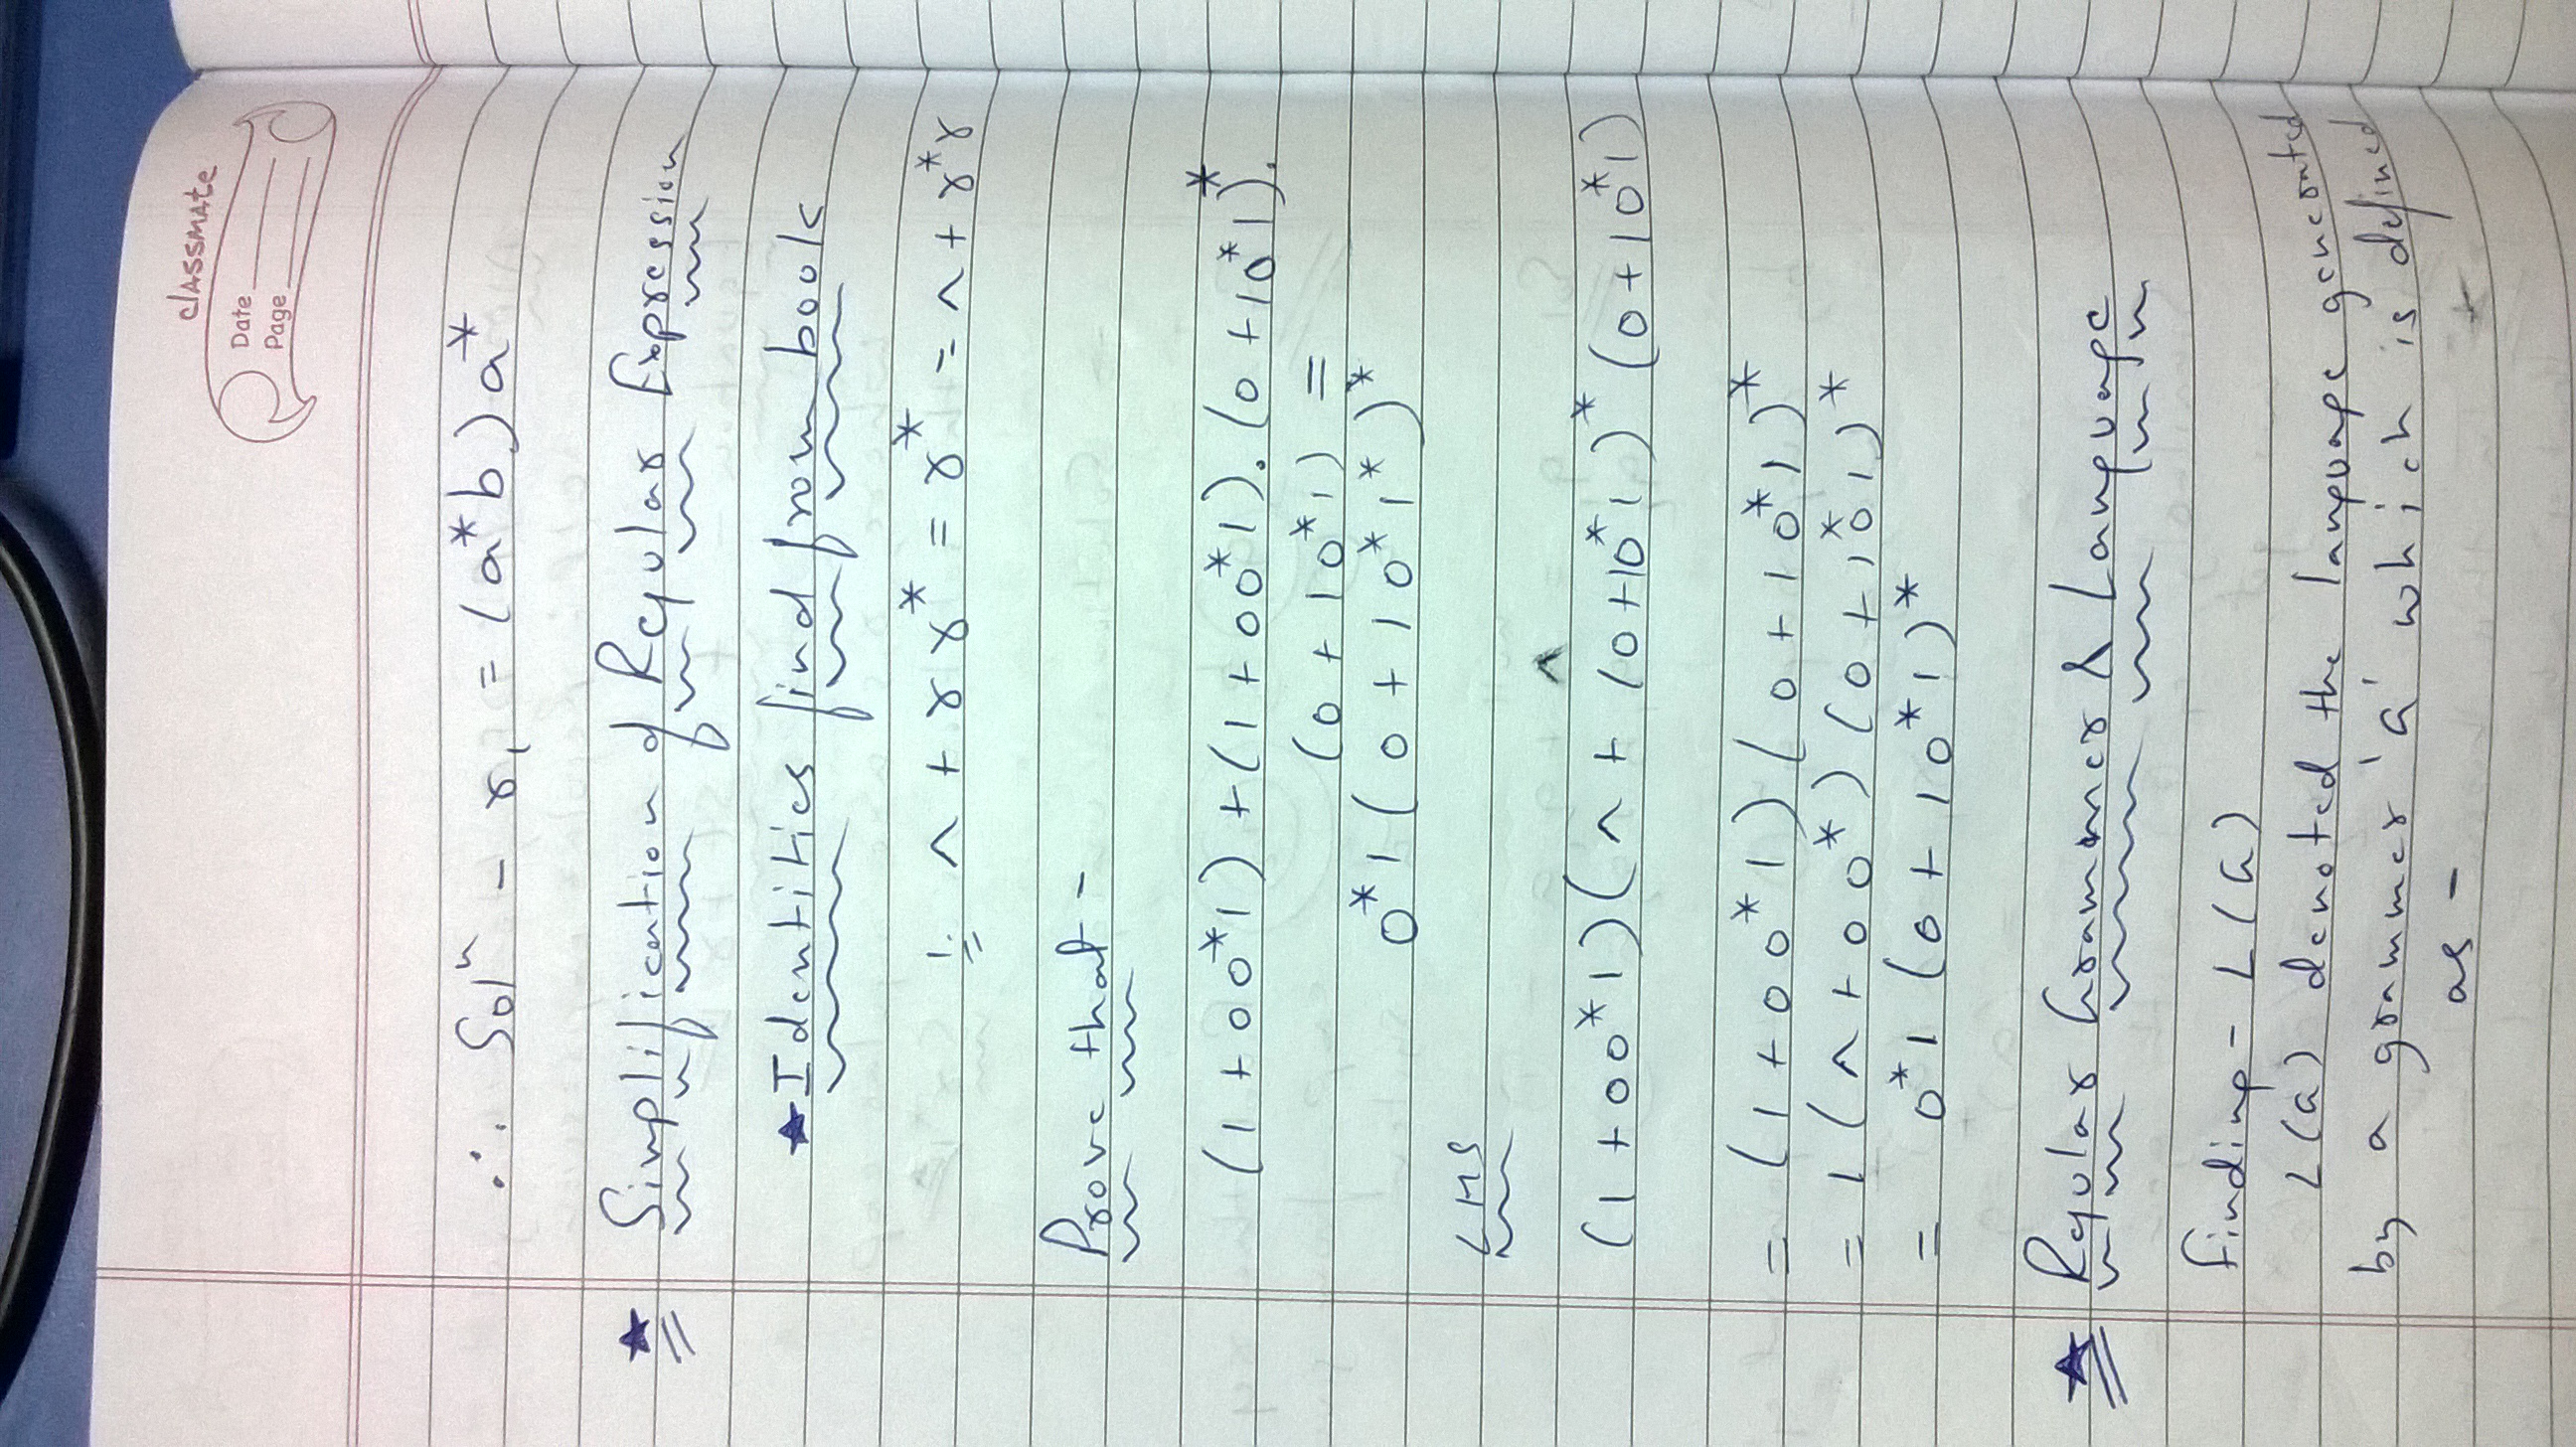 classmate
Date
Page
∴ Solⁿ - r₁ = (a*b)a*
★ Simplification of Regular Expression
★ Identities find from book
1. ^ + rr* = r* = ^ + r*r
Prove that -
(1 + 00*1) + (1 + 00*1). (0 + 10*1)*.
(0 + 10*1) =
0*1 ( 0 + 10*1* )*
LHS
^
(1 + 00*1)(^ + (0+10*1)* (0+10*1)
= (1 + 00*1) (0 + 10*1)*
= 1 (^ + 00*) (0 + 10*1)*
= 0*1 (0 + 10*1)*
★ Regular Grammer & Language
Finding - L(G)
L(G) denoted the language generated
by a grammer 'G' which is defined
as -